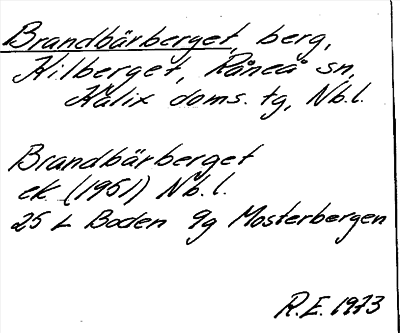 Brandbärberget, berg,
Hilberget, Råneå sn,
Kalix doms. tg, Nb.l.
Brandbärberget
ek. (1961) Nb.l.
25 L Boden 9g Mosterbergen
R.E. 1973